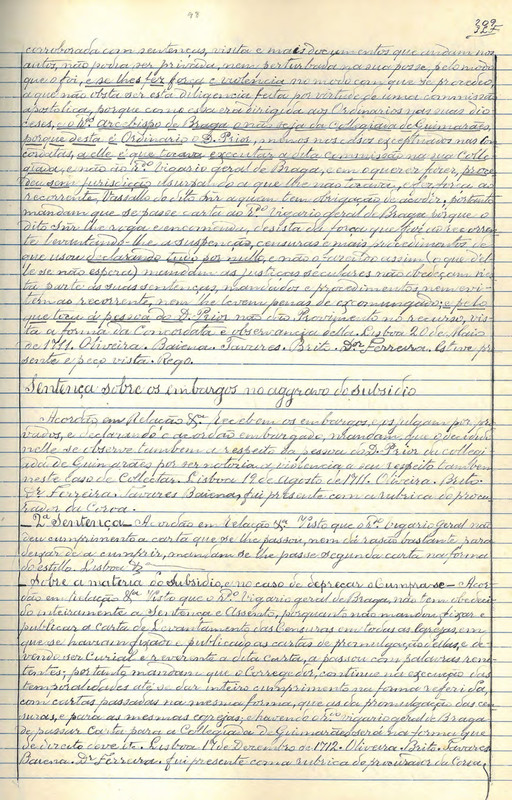 48
399
327
corroborada com sentenças, visita e mais documentos que andam nos
autos, não podia ser privada, nem perturbada na sua posse, pelo modo
que o foi, e se lhes fez força e violencia no modo com que se procedeo,
a que não obsta ser esta diligencia feita por virtude de uma commissão
apostolica, porque como essa era dirigida aos Ordinarios nas suas dio
ceses, e o Rdo Arcebispo de Braga o não seja da Collegiada de Guimarães,
porque desta é Ordinario o D. Prior, menos nos casos exceptuados nas con
cordatas, a elle é que tocava executar a dita commissão na sua Colle
giada, e não ao Rdo Vigario geral de Braga, e em o querer fazer, proce
deu sem jurisdicção usurpando a que lhe não tocava, e fez força ao
recorrente, Vassallo do dito Snr a quem tem obrigação de acudir, portanto
mandam que se passe carta ao Rdo Vigario geral de Braga porque o
dito Snr lhe roga e encomenda, desista da força que fez ao recorren
te levantando-lhe a suspenção, censuras e mais procedimentos, de
que usou declarando tudo por nullo, e não o fazendo assim (o que del
le se não espera) mandam as justiças seculares não obedeçam nes
ta parte ás suas sentenças, mandados e procedimentos, nem evi
tam ao recorrente, nem lhe levem penas de excomungado; e pelo
que toca á pessoa do D. Prior não dão Provimento no recurso, vis
ta a forma da Concordata e observancia della. Lisboa 20 de Maio
de 1711. Oliveira. Baiena. Tavares. Brito. Dor Ferreira. Estive pre
sente e peço vista. Rego.
Sentença sobre os embargos no aggravo do subsidio
Acordão em Relação &ra Recebem os embargos, e os julgam por pro
vados, e declarando o acordão embargado, mandam, que o decidido
nelle se observe tambem a respeito da pessoa do D. Prior da collegi
ada de Guimarães por ser notoria a violencia a seu respeito tambem
neste caso de Collectar. Lisboa 12 de agosto de 1711. Oliveira. Brito.
Dr Ferreira. Tavares Baiena, fui presente com a rubrica do procu
rador da Coroa.
2ª Sentença – Acordão em Relação &ra Visto que o Rdo Vigario Geral não
deu cumprimento a carta que se lhe passou, nem dá razão bastante para
deixar de a cumprir, mandam se lhe passe segunda carta na forma
do estillo. Lisboa &
Sobre a materia do Subsidio, e no caso de deprecar o Cumpra-se – Acor
dão em Relação &ra Visto que o Rdo Vigario geral de Braga, não tem obedeci
do inteiramente a Sentença e Assento, porquanto não mandou fixar e
publicar a Carta de Levantamento das Censuras em todas as Egrejas, em
que se haviam fixado e publicado as cartas de promulgação dellas, e de
vendo ser Curial e reverente a dita Carta, a passou com palavras reno
tantes; portanto mandam que o Corregedor, continue na execução das
temporalidades até se dar inteiro cumprimento na forma referida,
com cartas passadas na mesma forma, que as da promulgação das cen
suras, e para as mesmas egrejas, e havendo o Rdo Vigario geral de Braga
de passar Carta para a Collegiada de Guimarães será na forma que
de direito deve de. Lisboa 1º de Dezembro de 1712. Oliveira. Brito. Tavares
Baiena. Dr Ferreira. fui presente com a rubrica do procurador da Coroa.